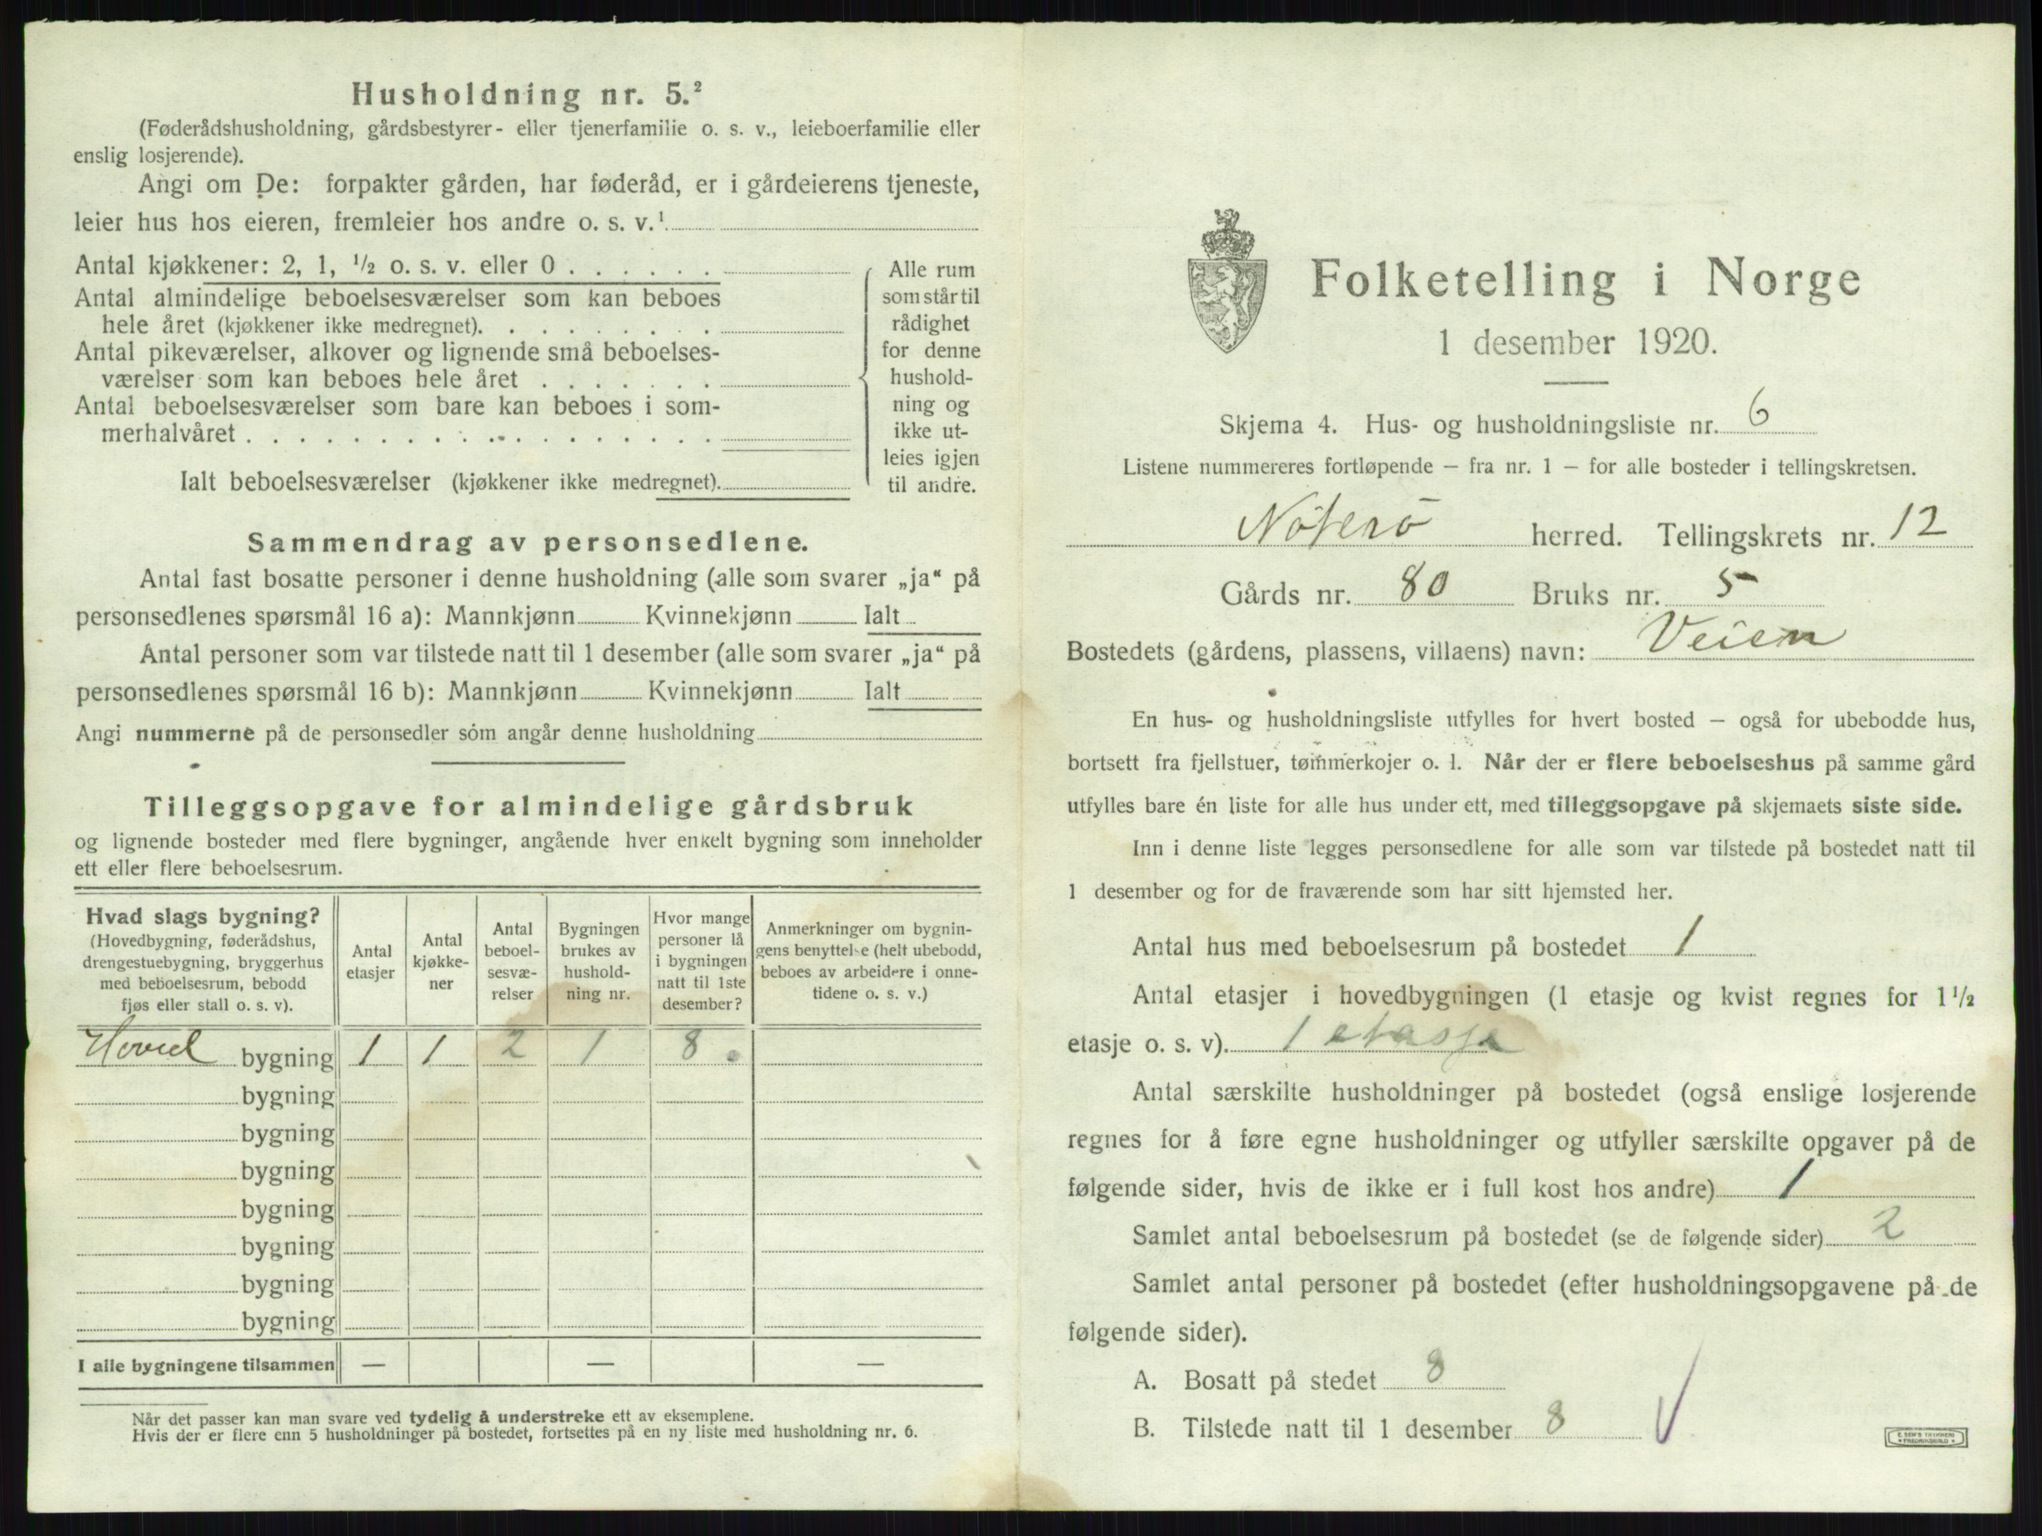 Husholdning nr. 5.²
(Føderådshusholdning, gårdsbestyrer- eller tjenerfamilie o. s. v., leieboerfamilie eller
enslig losjerende).
Angi om De: forpakter gården, har føderåd, er i gårdeierens tjeneste,
leier hus hos eieren, fremleier hos andre o. s. v.¹
Antal kjøkkener: 2, 1, ½ o. s. v. eller 0 . . . . . .
Antal almindelige beboelsesværelser som kan beboes
hele året (kjøkkener ikke medregnet). . . . . . . . .
Antal pikeværelser, alkover og lignende små beboelses-
værelser som kan beboes hele året . . . . . . .
Antal beboelsesværelser som bare kan beboes i som-
merhalvåret . . . . . . . . . . . . . . . . . .
Ialt beboelsesværelser (kjøkkener ikke medregnet).
Alle rum
som står til
rådighet
for denne
hushold-
ning og
ikke ut-
leies igjen
til andre.
Sammendrag av personsedlene.
Antal fast bosatte personer i denne husholdning (alle som svarer „ja“ på
personsedlenes spørsmål 16 a): Mannkjønn Kvinnekjønn Ialt
Antal personer som var tilstede natt til 1 desember (alle som svarer „ja“ på
personsedlenes spørsmål 16 b): Mannkjønn Kvinnekjønn Ialt
Angi nummerne på de personsedler som angår denne husholdning
Tilleggsopgave for almindelige gårdsbruk
og lignende bosteder med flere bygninger, angående hver enkelt bygning som inneholder
ett eller flere beboelsesrum.
Hvad slags bygning?
(Hovedbygning, føderådshus,
drengestuebygning, bryggerhus
med beboelsesrum, bebodd
fjøs eller stall o. s. v).
Antal
etasjer
Antal
kjøkke-
ner
Antal
beboel-
sesvæ-
relser
Bygningen
brukes av
hushold-
ning nr.
Hvor mange
personer lå
i bygningen
natt til 1ste
desember?
Anmerkninger om bygnin-
gens benyttelse (helt ubebodd,
beboes av arbeidere i onne-
tidene o. s. v.)
Hoved bygning 1 1 2 1 8
bygning
bygning
bygning
bygning
bygning
bygning
bygning
I alle bygningene tilsammen — — —
Når det passer kan man svare ved tydelig å understreke ett av eksemplene.
Hvis der er flere enn 5 husholdninger på bostedet, fortsettes på en ny liste med husholdning nr. 6.
Folketelling i Norge
1 desember 1920.
Skjema 4. Hus- og husholdningsliste nr. 6
Listene nummereres fortløpende — fra nr. 1 — for alle bosteder i tellingskretsen.
Nöterö herred. Tellingskrets nr. 12
Gårds nr. 80 Bruks nr. 5
Bostedets (gårdens, plassens, villaens) navn: Veien
En hus- og husholdningsliste utfylles for hvert bosted — også for ubebodde hus,
bortsett fra fjellstuer, tømmerkojer o. l. Når der er flere beboelseshus på samme gård
utfylles bare én liste for alle hus under ett, med tilleggsopgave på skjemaets siste side.
Inn i denne liste legges personsedlene for alle som var tilstede på bostedet natt til
1 desember og for de fraværende som har sitt hjemsted her.
Antal hus med beboelsesrum på bostedet 1
Antal etasjer i hovedbygningen (1 etasje og kvist regnes for 1½
etasje o. s. v). 1 etasje
Antal særskilte husholdninger på bostedet (også enslige losjerende
regnes for å føre egne husholdninger og utfyller særskilte opgaver på de
følgende sider, hvis de ikke er i full kost hos andre) 1
Samlet antal beboelsesrum på bostedet (se de følgende sider) 2
Samlet antal personer på bostedet (efter husholdningsopgavene på de
følgende sider).
A. Bosatt på stedet 8
B. Tilstede natt til 1 desember 8